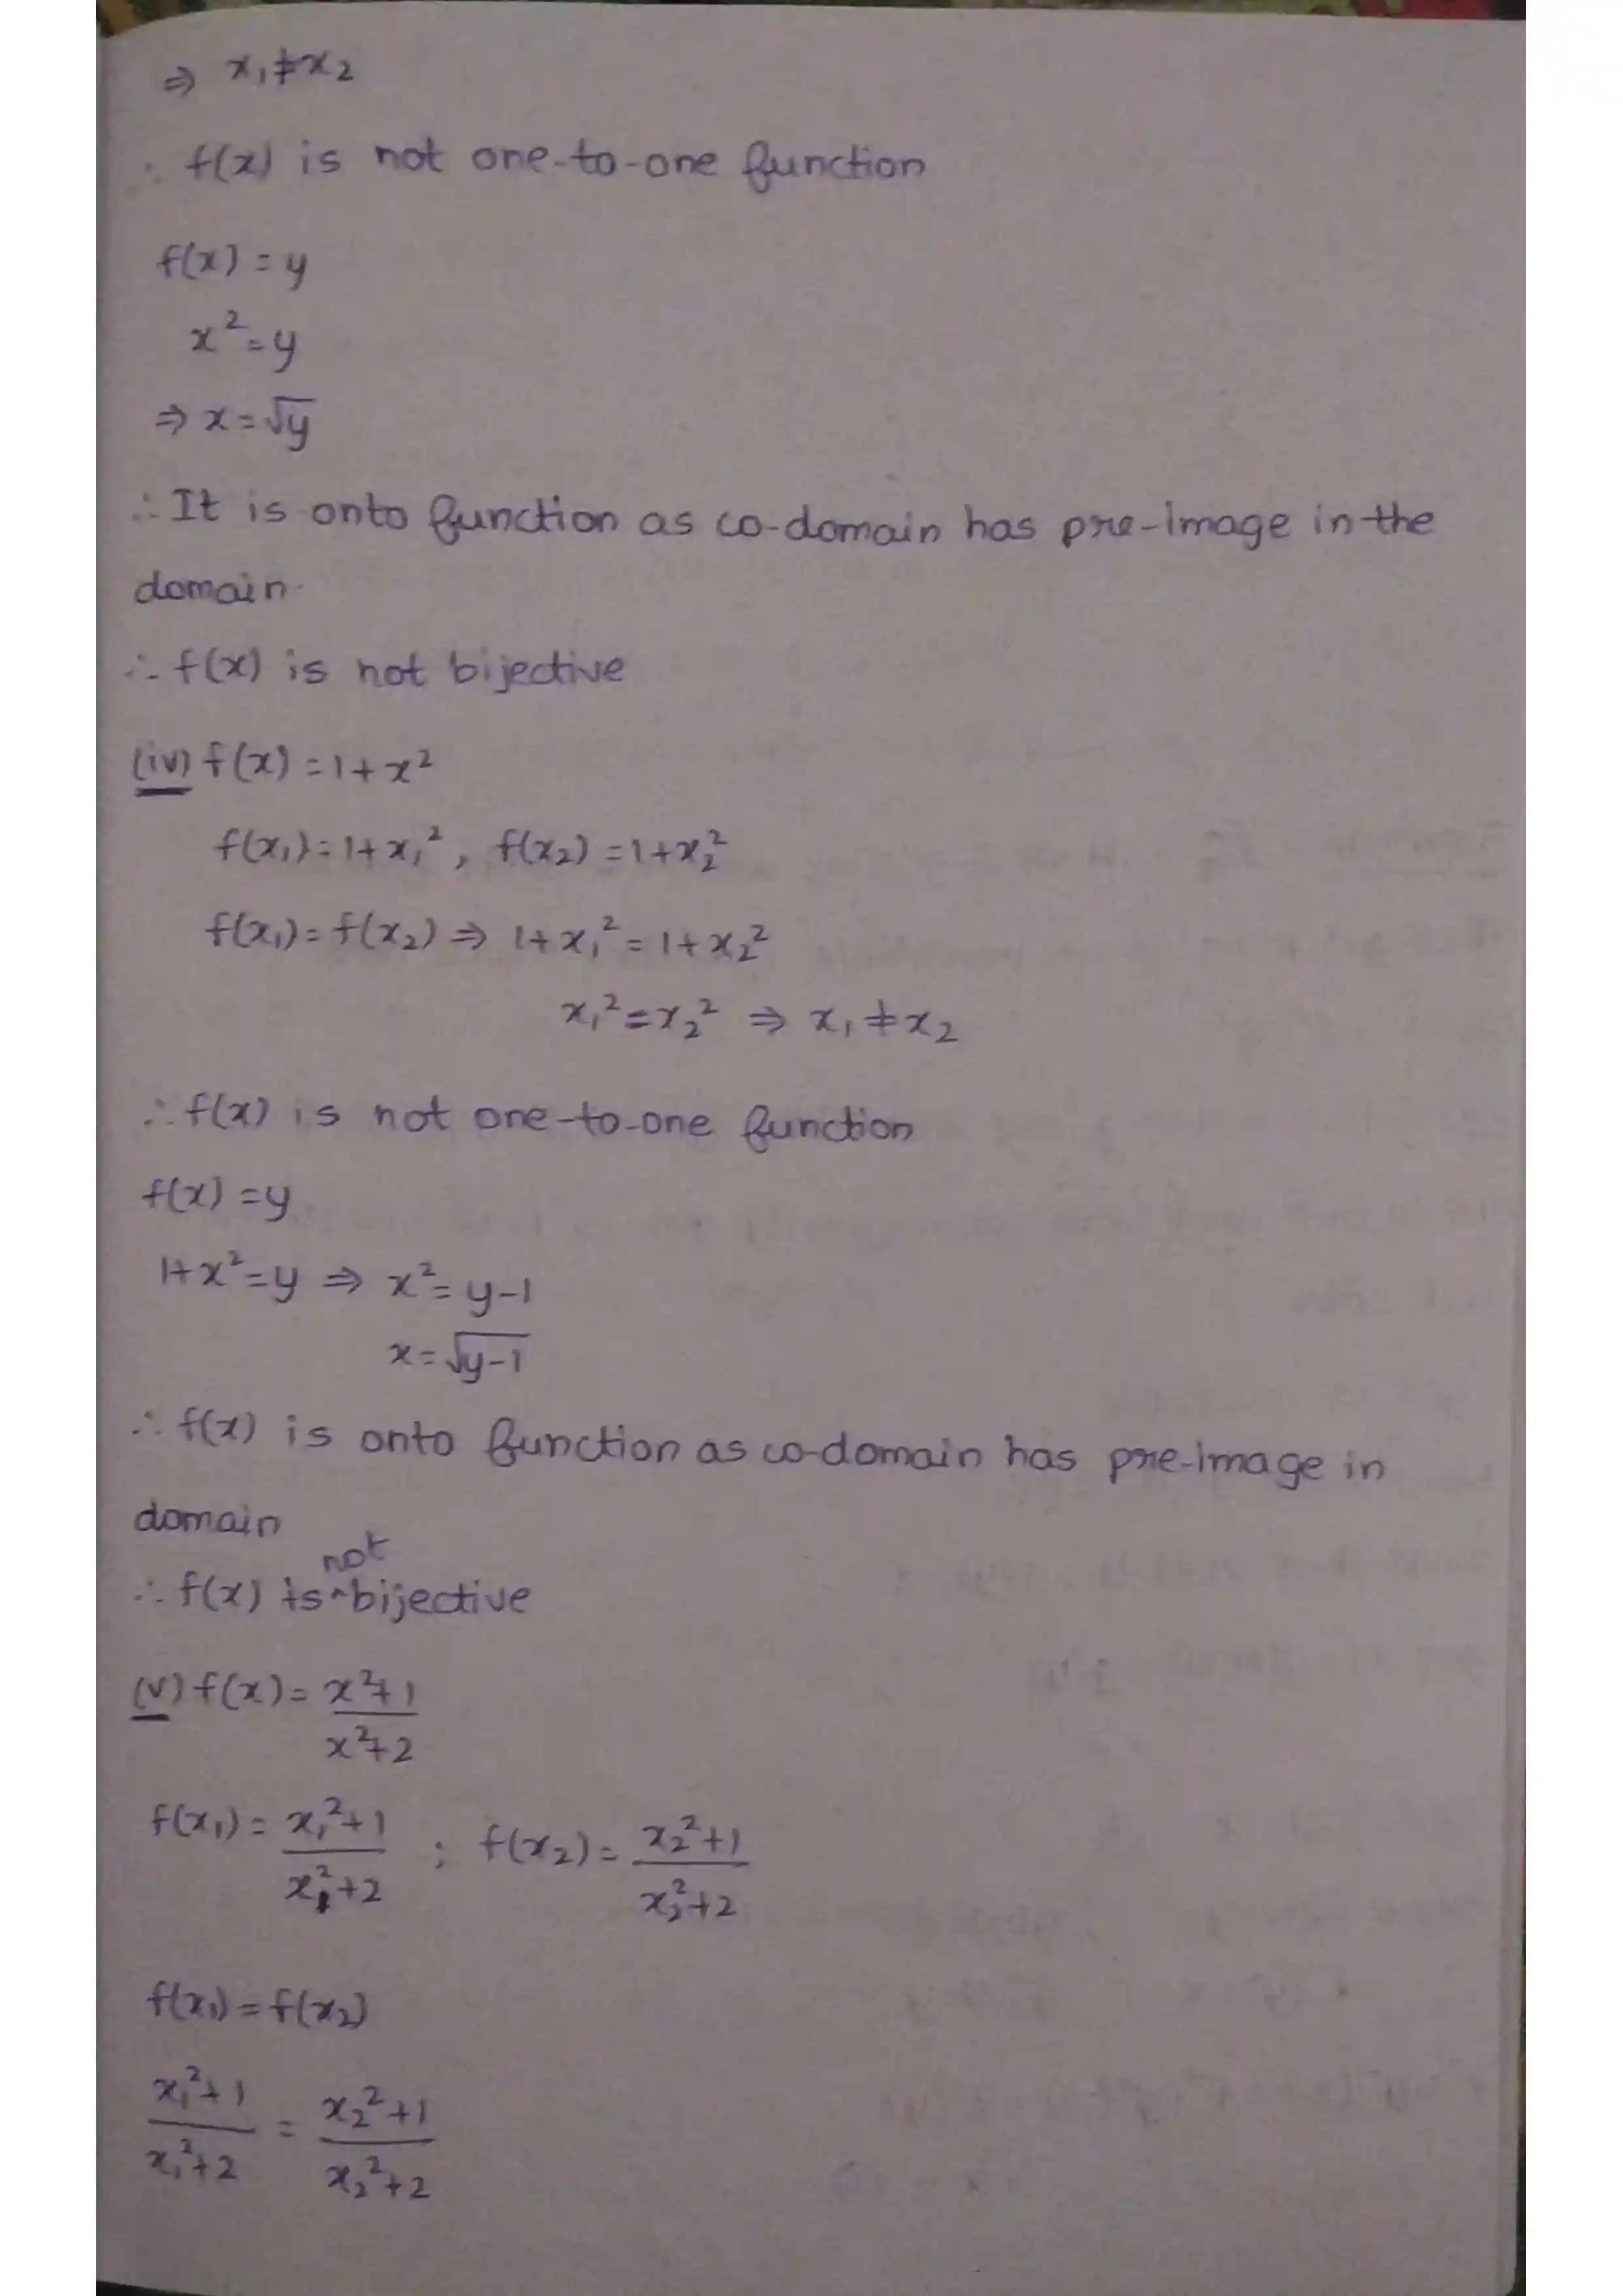 ⇒ x₁≠x₂
∴ f(x) is not one-to-one function
f(x) = y
x² = y
⇒ x = √y
∴ It is onto function as co-domain has pre-image in the
domain.
∴ f(x) is not bijective
(iv) f(x) = 1+x²
f(x₁) = 1+x₁² , f(x₂) = 1+x₂²
f(x₁) = f(x₂) ⇒ 1+x₁² = 1+x₂²
x₁² = x₂² ⇒ x₁ ≠ x₂
∴ f(x) is not one-to-one function
f(x) = y
1+x² = y ⇒ x² = y-1
x = √(y-1)
∴ f(x) is onto function as co-domain has pre-image in
domain
∴ f(x) is not bijective
(v) f(x) = (x²+1)/(x²+2)
f(x₁) = (x₁²+1)/(x₁²+2) ; f(x₂) = (x₂²+1)/(x₂²+2)
f(x₁) = f(x₂)
(x₁²+1)/(x₁²+2) = (x₂²+1)/(x₂²+2)